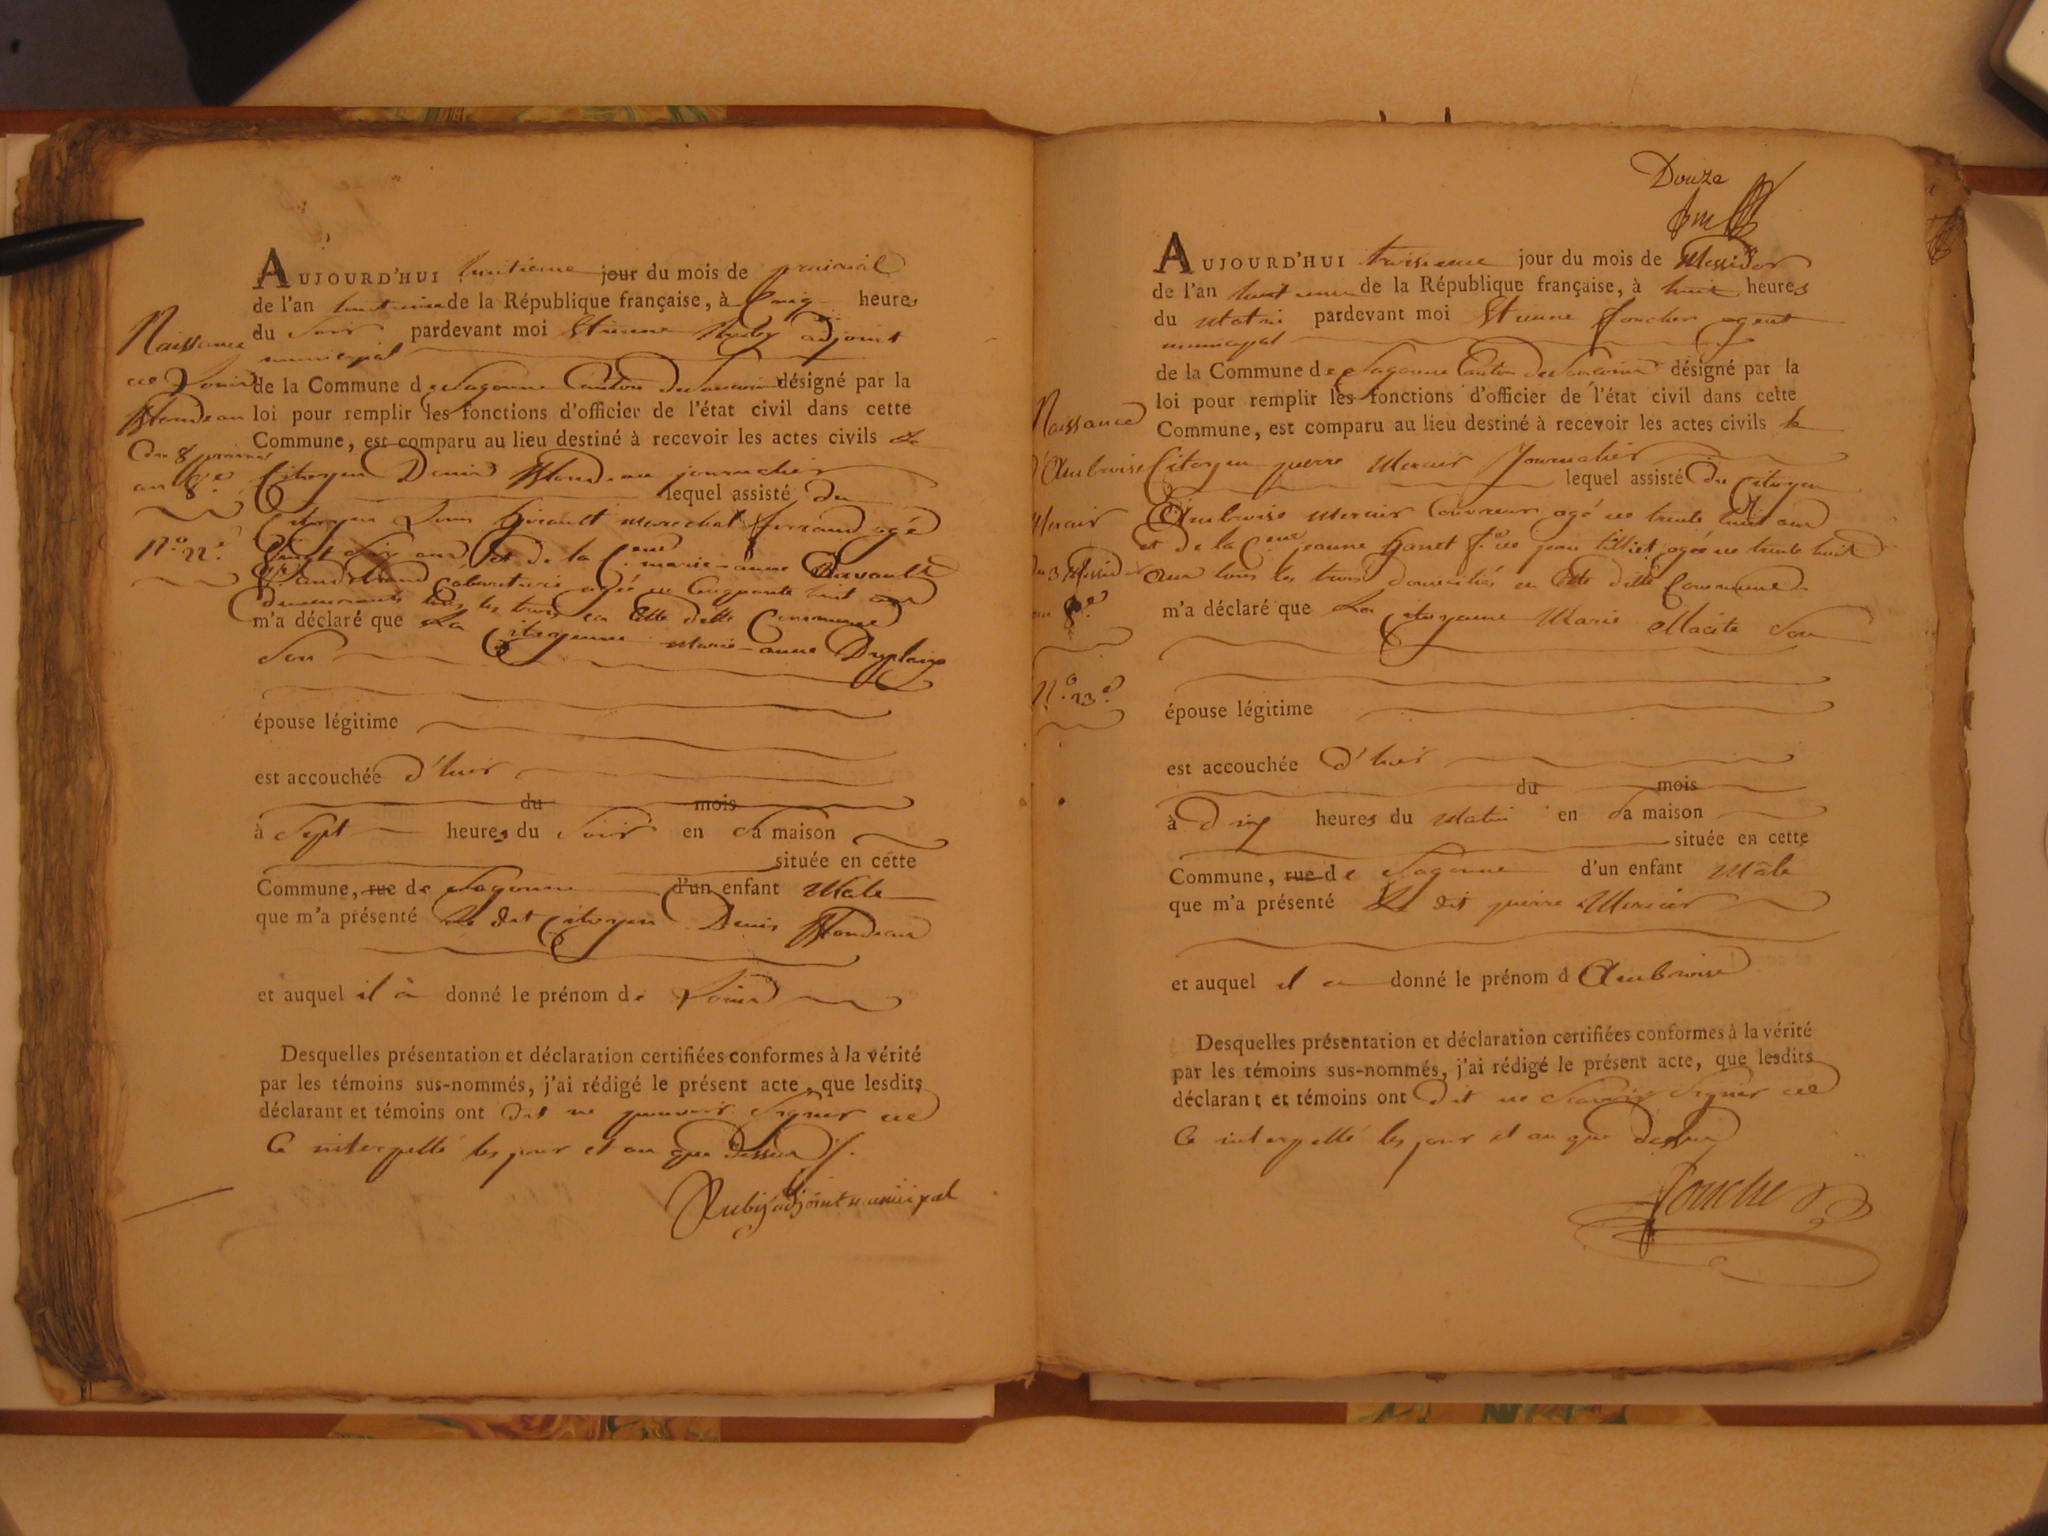 AUJOURD'HUI huitieme jour du mois de prairial
de l'an huitieme de la République française, à cinq heures
du Soir pardevant moi Etienne Ruby adjoint
municipal
de la Commune de Sagonne Canton de Sancoins désigné par la
loi pour remplir les fonctions d'officier de l'état civil dans cette
Commune, est comparu au lieu destiné à recevoir les actes civils le
Citoyen Denis journalier
lequel assisté du
Citoyen Louis Girault marechal ferrand agé
vingt six ans et de la C.enne marie-anne
cabaretiere agée de Cinquante huit ans
demeurants tous les trois en Cette ditte Commune
m'a déclaré que La Citoyenne Marie-anne Duplaix
Son
épouse légitime
est accouchée d'hier
du mois
à Sept heures du Soir en Sa maison
située en cette
Commune, rue de Sagonne d'un enfant Male
que m'a présenté Le dit Citoyen Denis
et auquel il à donné le prénom de Louis
Desquelles présentation et déclaration certifiées conformes à la vérité
par les témoins sus-nommés, j'ai rédigé le présent acte, que lesdits
déclarant et témoins ont dit ne pouvoir Signer de
Ce interpellé les jour et an que dessus
Ruby adjoint municipal
Naissance
de Louis
du 8 prairial
an 8.e
N.o 22.e
Douze
AUJOURD'HUI troisieme jour du mois de Messidor
de l'an huitieme de la République française, à huit heures
du Matin pardevant moi Etienne foucher agent
municipal
de la Commune de Sagonne Canton de Sancoins désigné par la
loi pour remplir les fonctions d'officier de l'état civil dans cette
Commune, est comparu au lieu destiné à recevoir les actes civils le
Citoyen pierre Mercier Journalier
lequel assisté du Citoyen
Ambroise Mercier Couvreur agé de trente huit ans
et de la C.enne jeanne f.e de jean tilliet agée de trente huit
ans tous les trois domiciliés en Cette ditte Commune
m'a déclaré que La Citoyenne Marie Macité Son
épouse légitime
est accouchée d'hier
du mois
à dix heures du Matin en Sa maison
située en cette
Commune, rue de Sagonne d'un enfant Mâle
que m'a présenté Le dit pierre Mercier
et auquel il a donné le prénom d'Ambroise
Desquelles présentation et déclaration certifiées conformes à la vérité
par les témoins sus-nommés, j'ai rédigé le présent acte, que lesdits
déclarant et témoins ont dit ne Savoir Signer de
Ce interpellé les jour et an que dessus
Foucher
Naissance
d'Ambroise
Mercier
du 3 Messidor
an 8.e
N.o 23.e